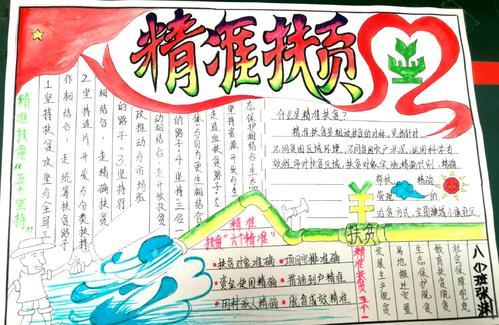 精准扶贫
精准扶贫“五个坚持”
1坚持扶贫攻坚与全局工
作相结合,走统筹扶贫路子
2坚持连片开发与分类扶持
相结合,走精确扶贫
的路子。3坚持行
政推动与市场驱
动相结合,走开放扶贫
的路子。4坚持三位一
体与自力更生相结合
坚持资源开发与生
态保护相结合,走生态
什么是精准扶贫?
精准扶贫是粗放扶贫的对称,是指针对
不同贫困区域环境、不同贫困农户状况,运用科学有
效程序对扶贫对象实施精确识别、精确
帮扶 精确
管理 的
治贫方式,全面建成小康社会
精准
扶贫“六个精准”
·扶贫对象准确 ·项目安排准确
·资金使用精确 ·措施到户精准
·因村派人精确 ·脱贫成效精准
扶贫
精准扶贫五个一
发展生产脱贫
易地搬迁安置
生态保护脱贫
教育扶贫脱贫
社会保障脱贫